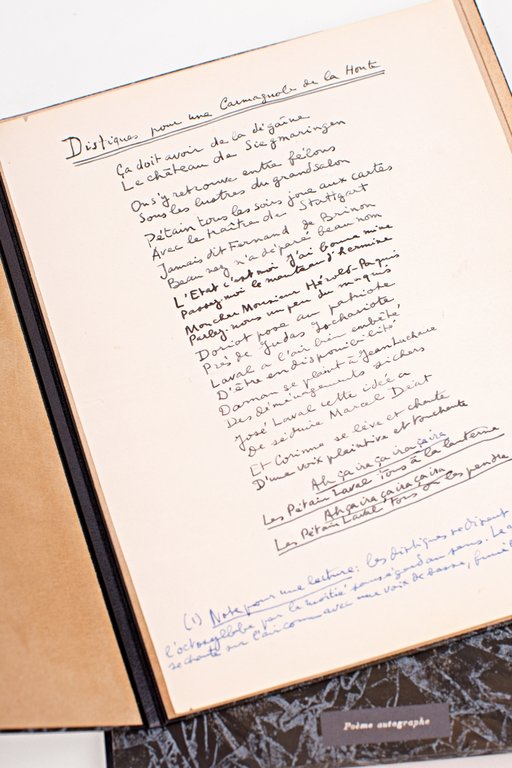 Distiques pour une Carmagnole de la Honte
Ça doit avoir de la dégaîne
Le château de Siegmaringen
On s'y retrouve entre félons
Sous les lustres du grand salon
Pétain tous les soirs joue aux cartes
Avec le traître de Stuttgart
Jamais dit Fernand de Brinon
Beau nez n'a déparé beau nom
L'Etat c'est moi j'ai bonne mine
Passez-moi le manteau d'hermine
Mon cher Monsieur Hérold-Paquis
Parlez-nous un peu du maquis
Doriot pose au patriote
Près de Judas Ischariote,
Laval a l'air bien embêté
D'être en disponibilité
Darnan se plaint à Jean Luchaire
Des déménagements si chers
José Laval cette idée a
De séduire Marcel Déat
Et Corinne se lève et chante
D'une voix plaintive et touchante
Ah ça ira ça ira ça ira
Les Pétain Laval Tous à la lanterne
Ah ça ira ça ira ça ira
Les Pétain Laval Tous on les pendra
(1) Note pour une lecture: les distiques se disent
l'octosyllabe par la moitié sans égard au sens. Le
se chante sur l'air connu avec une voix de
Poème autographe